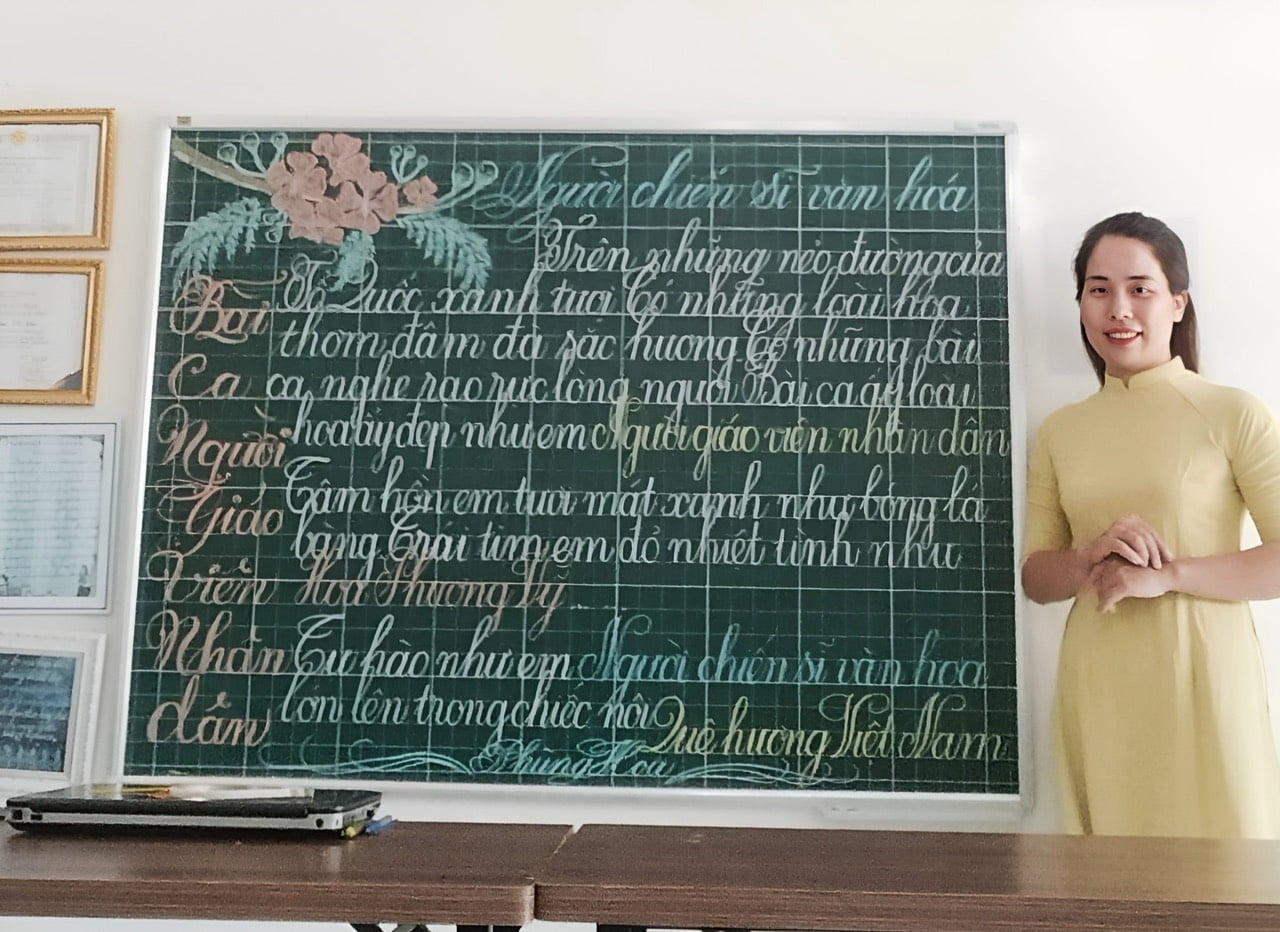 Người chiến sĩ văn hoá
Trên những nẻo đường của
Tổ Quốc xanh tươi Có những loài hoa
thơm đậm đà sắc hương Có những bài
ca nghe rạo rực lòng người Bài ca ấy loài
hoa ấy đẹp như em Người giáo viên nhân dân
Tâm hồn em tươi mát xanh như bóng lá
bàng Trái tim em đỏ nhiệt tình như
Hoa Phượng Vỹ
Tự hào như em Người chiến sĩ văn hoá
lớn lên trong chiếc nôi Quê hương Việt Nam
Phùng Hoa
Bài
Ca
Người
Giáo
Viên
Nhân
dân